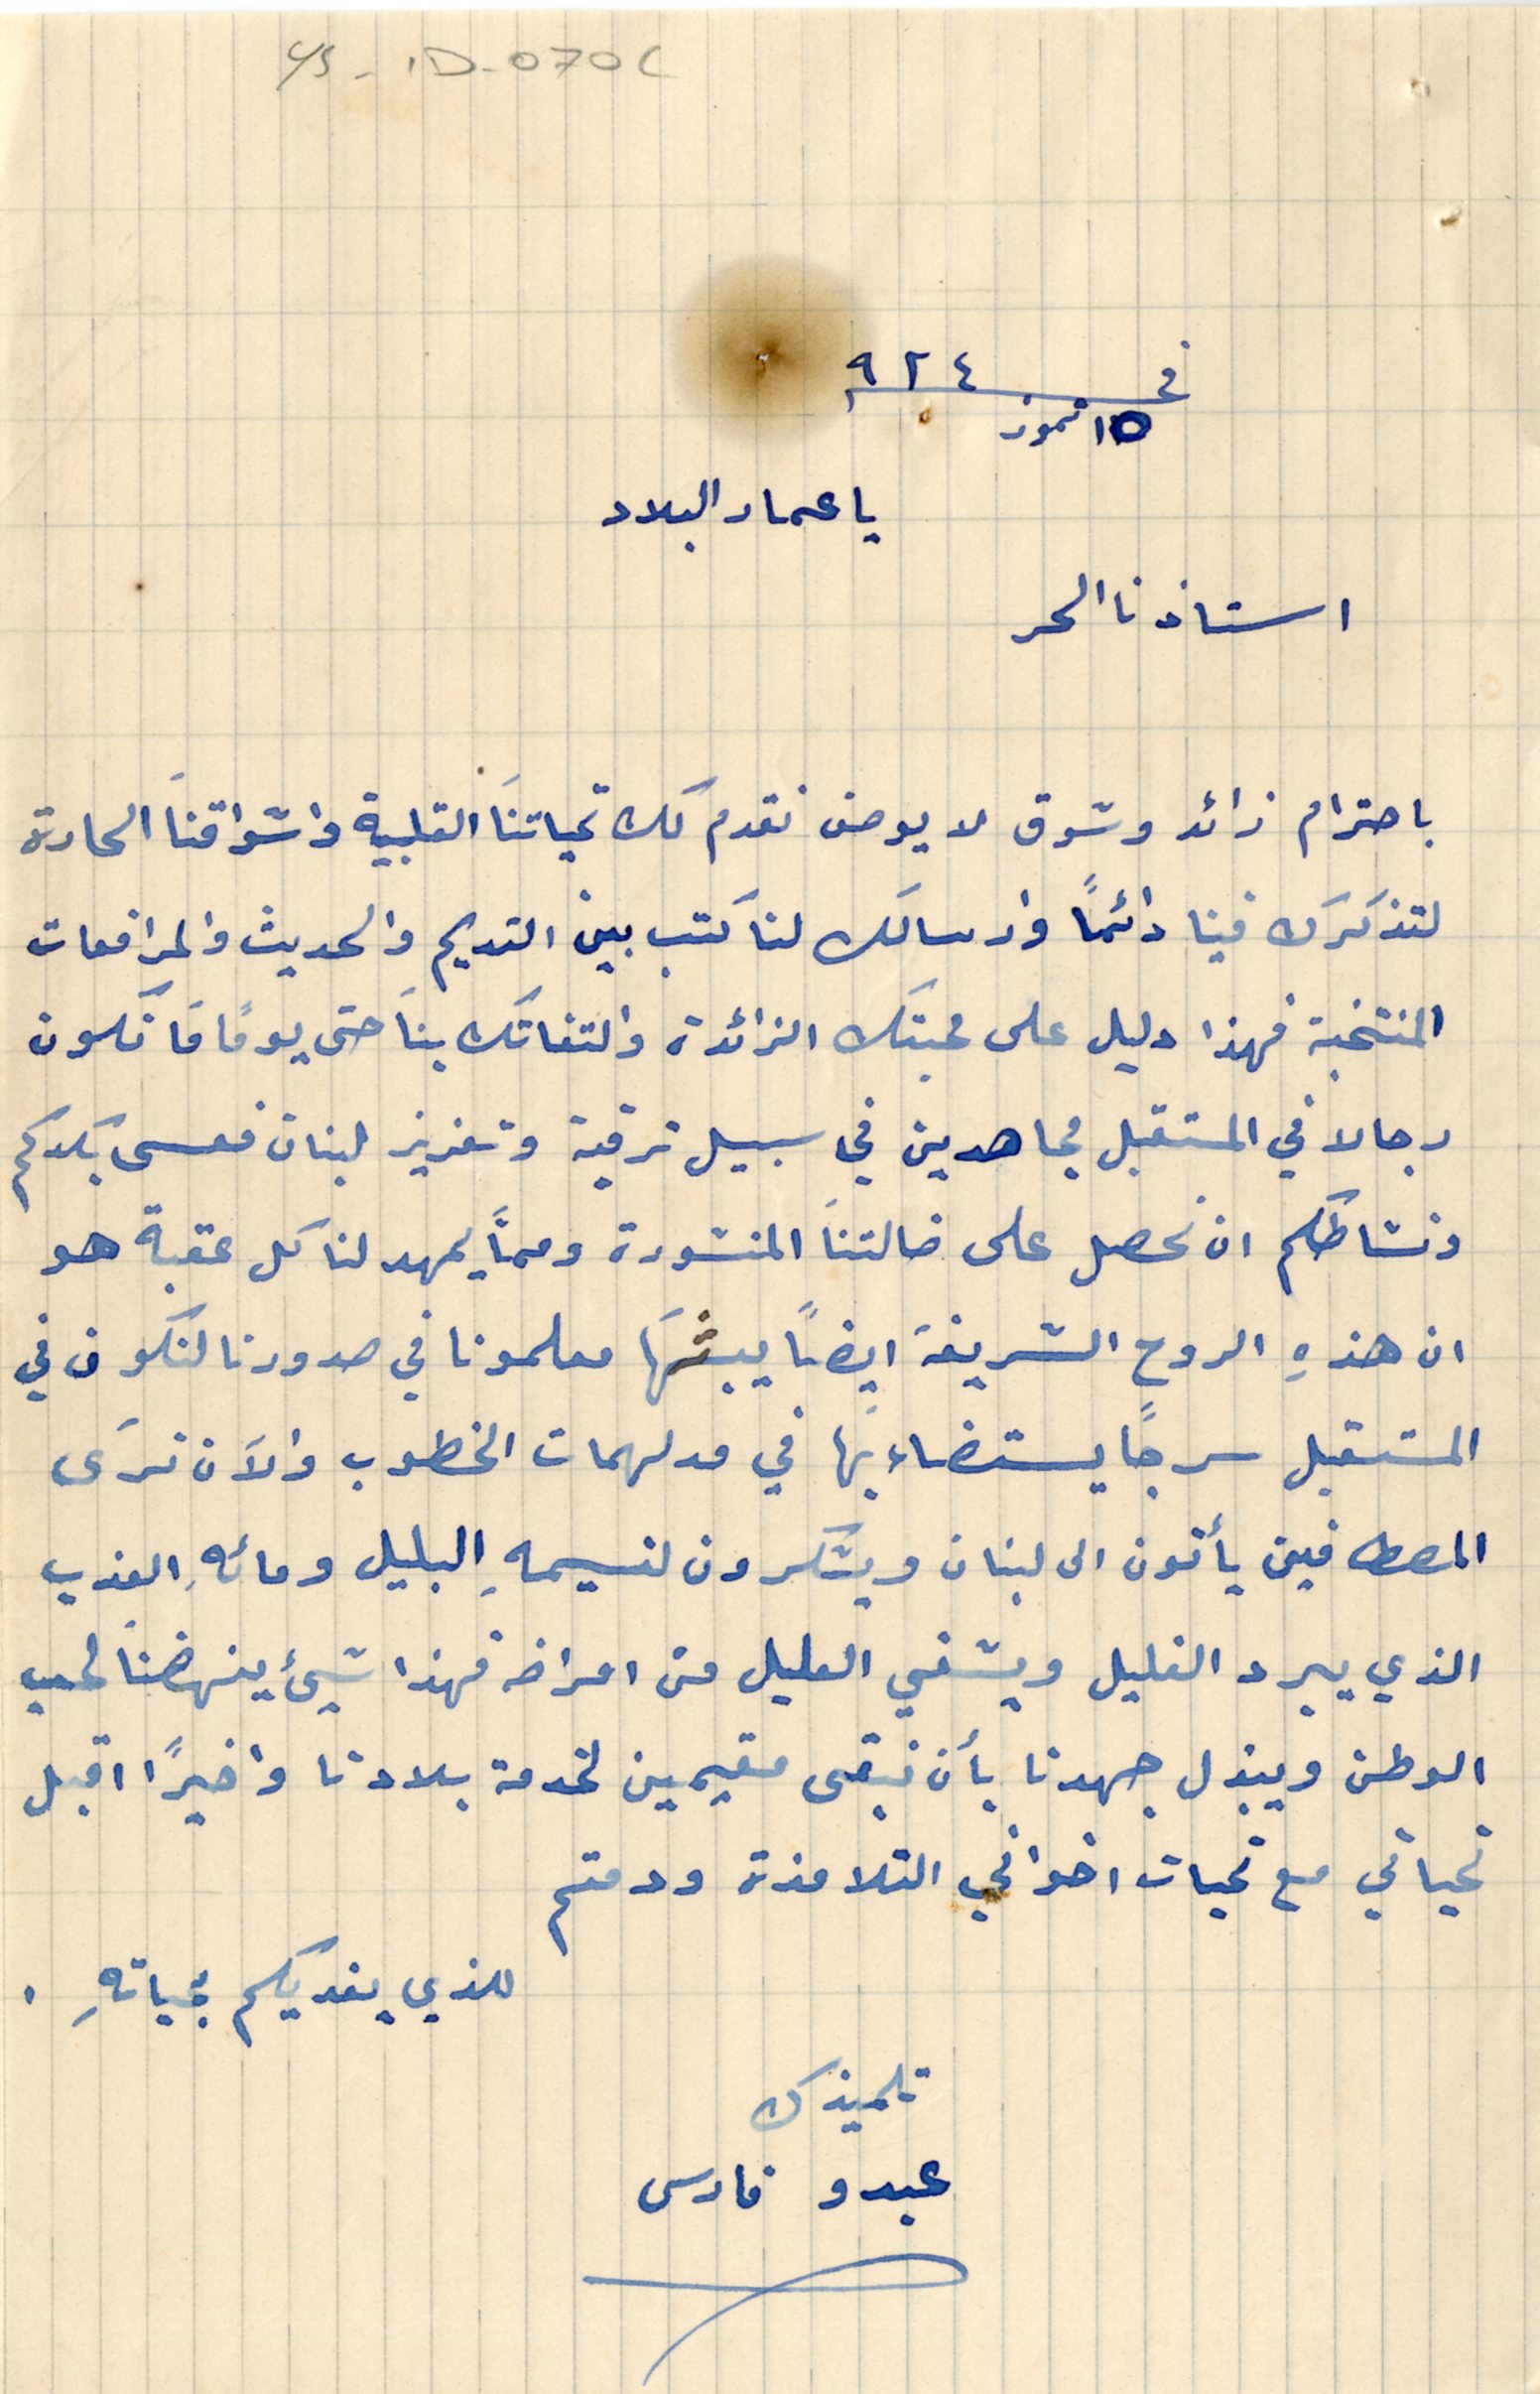 YS - 1D - 070 C
في ٩٢٤
١٥ تموز
يا عماد البلاد
استاذنا الحر
باحترام زائد وشوق لا يوصف نقدم لك تحياتنَا القلبية واشواقنَا الحارة
لتذكرك فينا دائمًا وارسالك لنا كتب بين القديم والحديث والمرافعات
المنتخبة فهذا دليل على محبتك الزائدة والتفاتك بنَا حتى يومًا مَا نكون
رجالا في المستقبل مجاهدين في سبيل ترقية وتعزيز لبنان فعسى بكدكم
ونشاطكم ان نحصل على ضالتنَا المنشودة وممَّا يمهد لنا كل عقبة هو
ان هذهِ الروح الشريفة ايضًا يبثهَا معلمونا في صدورنا لنكون في
المستقبل سرجًا يستضاء بهَا في مدلهمات الخطوب والآن نرَى
المصطافين يأتون الى لبنان ويشكرون لنسيمهِ البليل ومائهِ العذب
الذي يبرد الغليل ويشفي العليل من امراضه فهذا شيئ ينهضنَا لحب
الوطن ويبذل جهدنا بأن نبقى مقيمين لخدمة بلادنا واخيرًا اقبل
تحياتي مع تحيات اخواني التلامذة ودمتم
للذي يفديكم بحياتهِ .
تلميذك
عبدو فارس